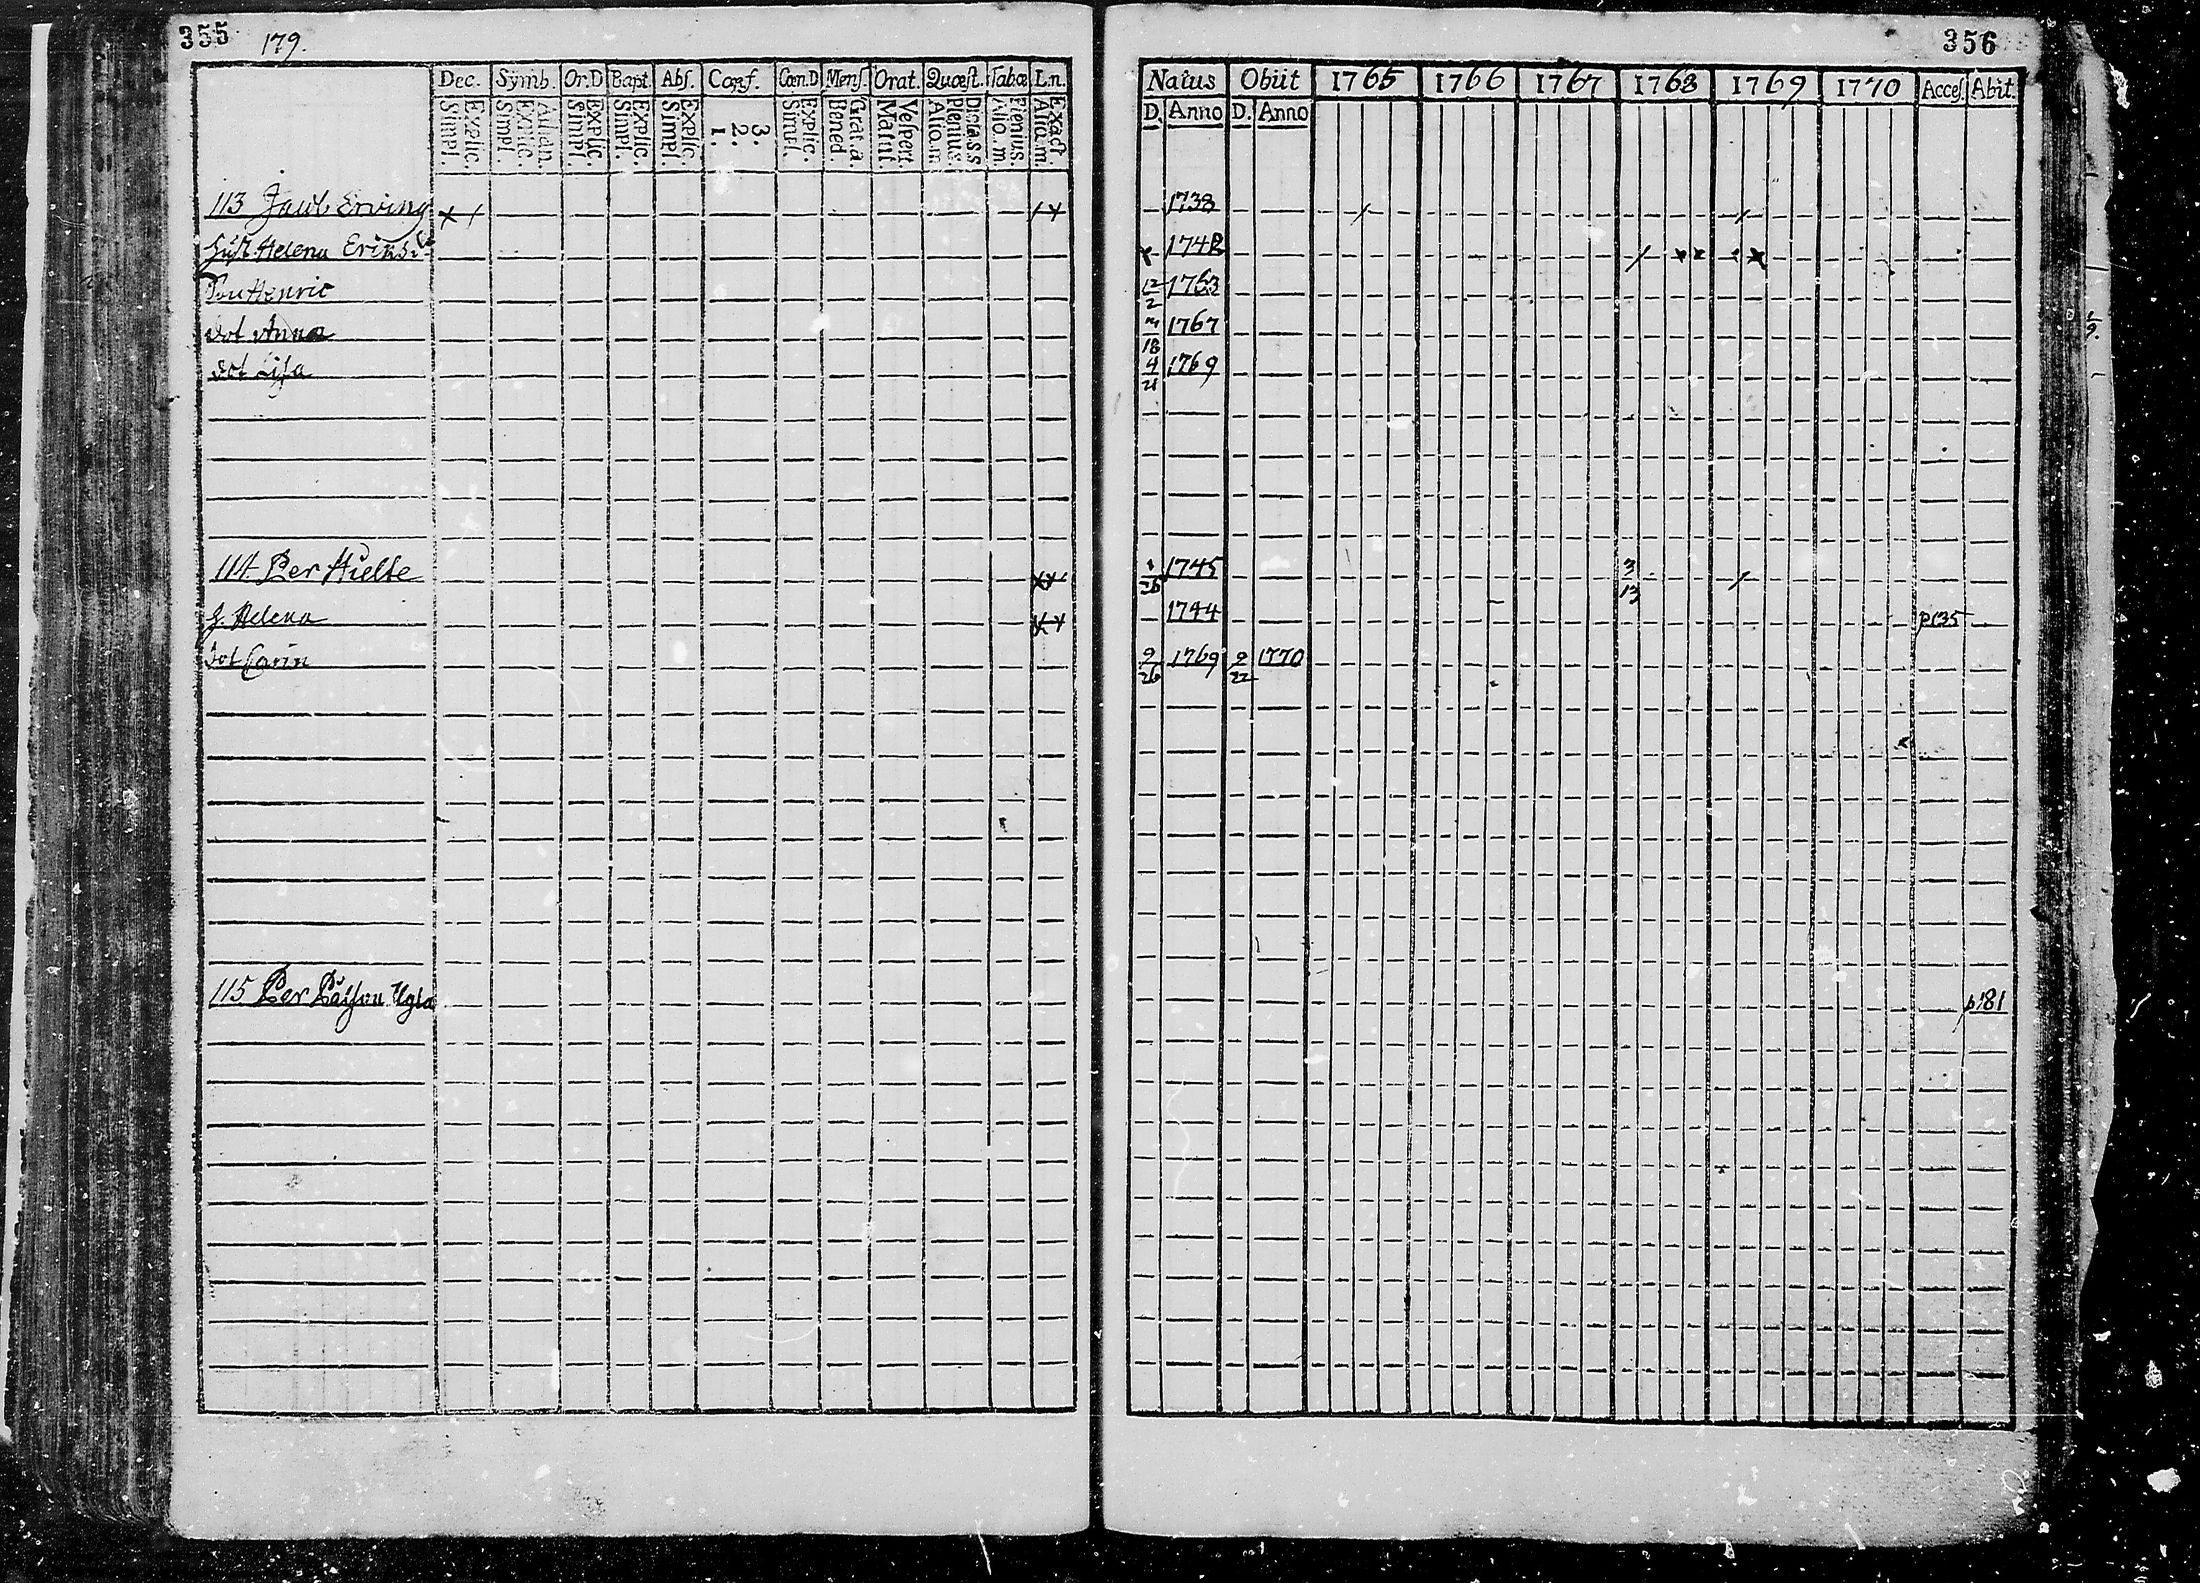 355 179.
Dec. Symb. Or.D Bapt. Abs. Conf. Cœn.D Mens. Orat. Quæst. Tabæ L.n.
Explic. Simpl. Athan. Explic. Simpl. Explic. Simpl. Explic. Simpl. Explic. Simpl. 3. 2. 1. Explic. Simpl. Grat. a. Bened. Vespert. Matut. Dicta s.s. Plenius. Alio. m. Plenius. Alio. m. Exact. Alia. m.
113 Jacob Erving × /
Hust. Helena Eriksd:
Son Henric
dot Anna
dot Lisa
114. Per Hielte
H. Helena
dot Carin
115 Per Ugla
356
Natus Obiit 1765 1766 1767 1768 1769 1770 Acces. Abit.
D. Anno D. Anno
1738
1742
12/2 1763
1767
4/21 1769
1/26 1745 3/13
1744 p135
9/26 1769 9/22 1770
p181